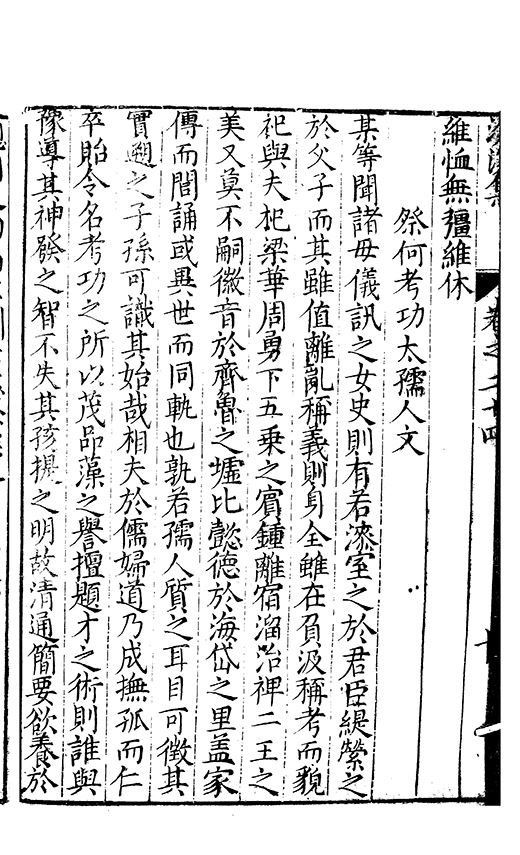 維恤無疆維休
祭何考功太孺人文
某等聞諸毋儀訊之女史則有若漆室之於君臣緹縈之
於父子而其雖值離亂稱義則身全雖在負汲稱考而貌
祀與夫杞梁華周勇下五乗之賓鍾離宿溜治禆二王之
美又莫不嗣徽音於齊魯之墟比懿德於海岱之里盖家
傳而閭誦或異世而同軌也孰若孺人質之耳目可徵其
實遡之子孫可識其始哉相夫於儒婦道乃成撫孤而仁
卒貽令名考功之所以茂品藻之譽擅題才之術則誰與
豫導其神發之智不失其孩提之明故清通簡要欲養於
卷之二十四